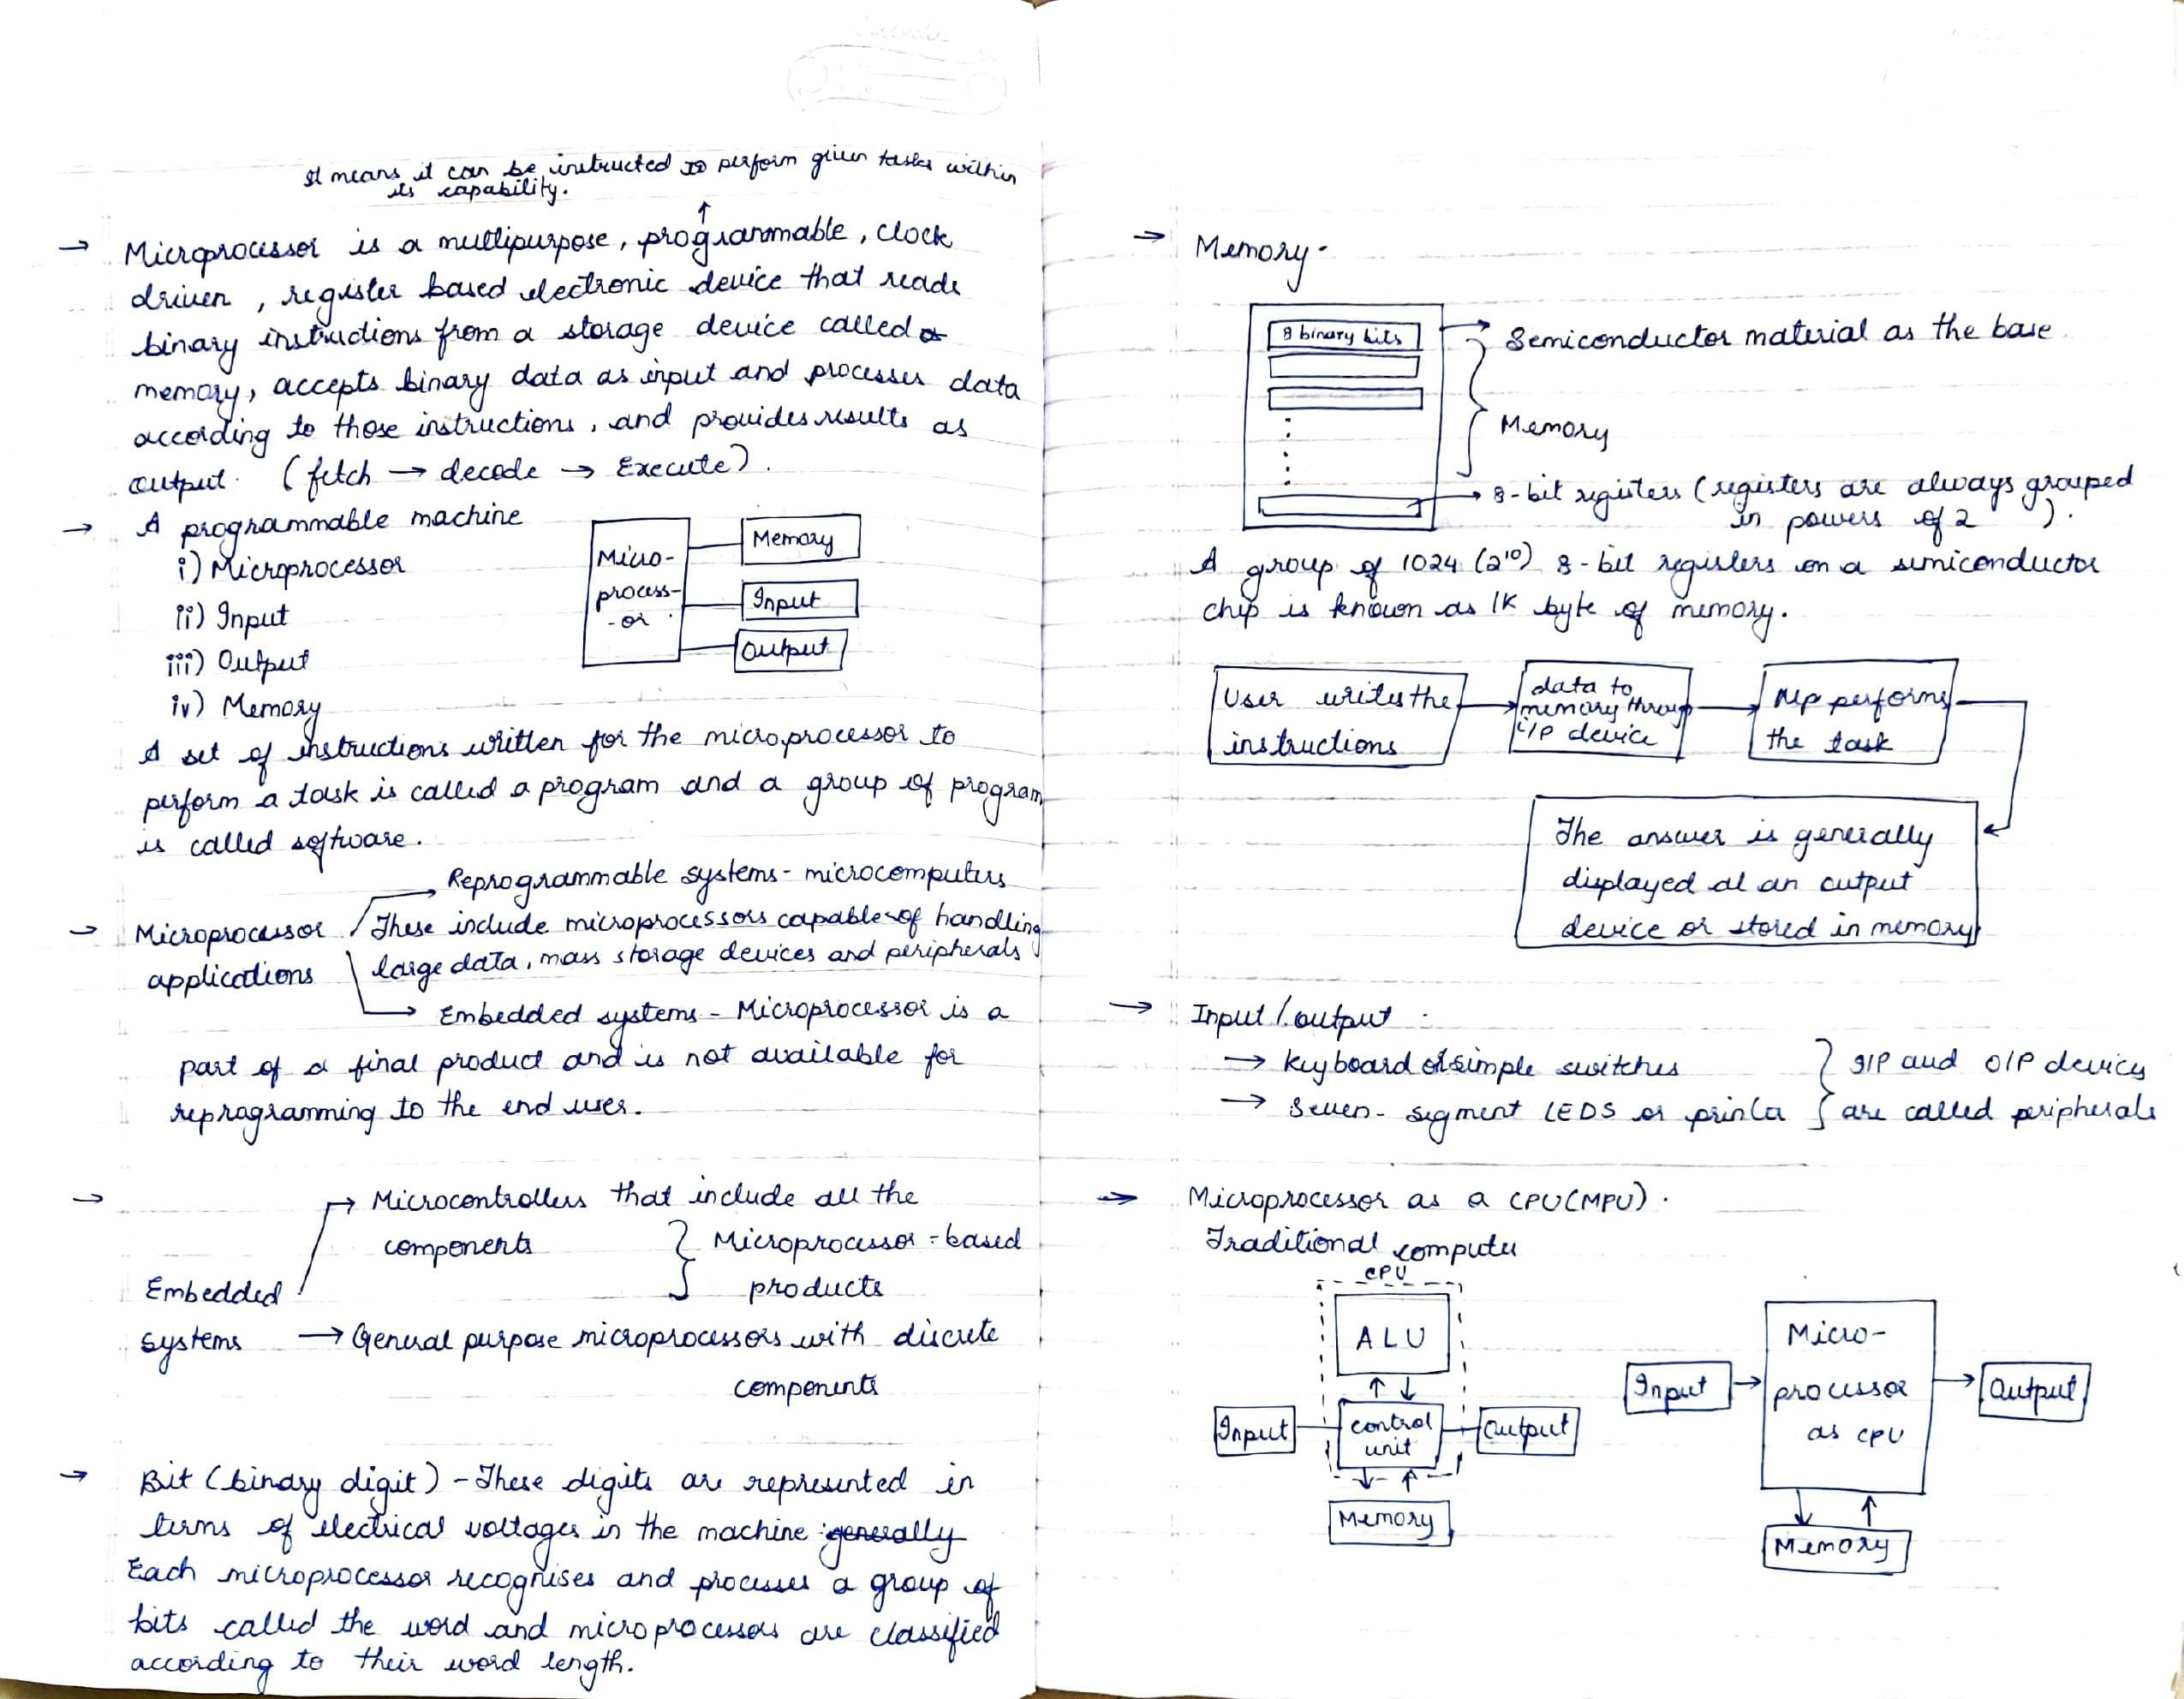 It means it can be instructed to perform given tasks within
its capability.
↑
→ Microprocessor is a multipurpose, programmable, clock
driven, register based electronic device that reads
binary instructions from a storage device called
memory, accepts binary data as input and processes data
according to those instructions, and provides results as
output. (fetch → decode → Execute).
→ A programmable machine
i) Microprocessor
ii) Input
iii) Output
iv) Memory
Micro-
process-
-or
Memory
Input
Output
A set of instructions written for the microprocessor to
perform a task is called a program and a group of program
is called software.
→ Microprocessor
applications
→ Reprogrammable systems - microcomputers
These include microprocessors capable of handling
large data, mass storage devices and peripherals
→ Embedded systems - Microprocessor is a
part of a final product and is not available for
reprogramming to the end user.
→ Embedded
systems
→ Microcontrollers that include all the
components
} Microprocessor-based
products
→ General purpose microprocessors with discrete
components
→ Bit (binary digit) - These digits are represented in
terms of electrical voltages in the machine generally
Each microprocessor recognises and processes a group of
bits called the word and microprocessors are classified
according to their word length.
→ Memory -
8 binary bits
→ Semiconductor material as the base
} Memory
→ 8-bit registers (registers are always grouped
in powers of 2 ).
A group of 1024 (2¹⁰) 8-bit registers on a semiconductor
chip is known as 1K byte of memory.
User writes the
instructions
data to
memory throug
i/p device
Mp performs
the task
The answer is generally
displayed at an output
device or stored in memory
→ Input / output
→ Keyboard or simple switches
→ Seven-segment LEDS or printer
} I/P and O/P devices
are called peripherals
→ Microprocessor as a CPU (MPU).
Traditional computer
CPU
ALU
↑ ↓
Input
control
unit
Output
↓ ↑
Memory
Input
Micro-
processor
as CPU
Output
↓ ↑
Memory